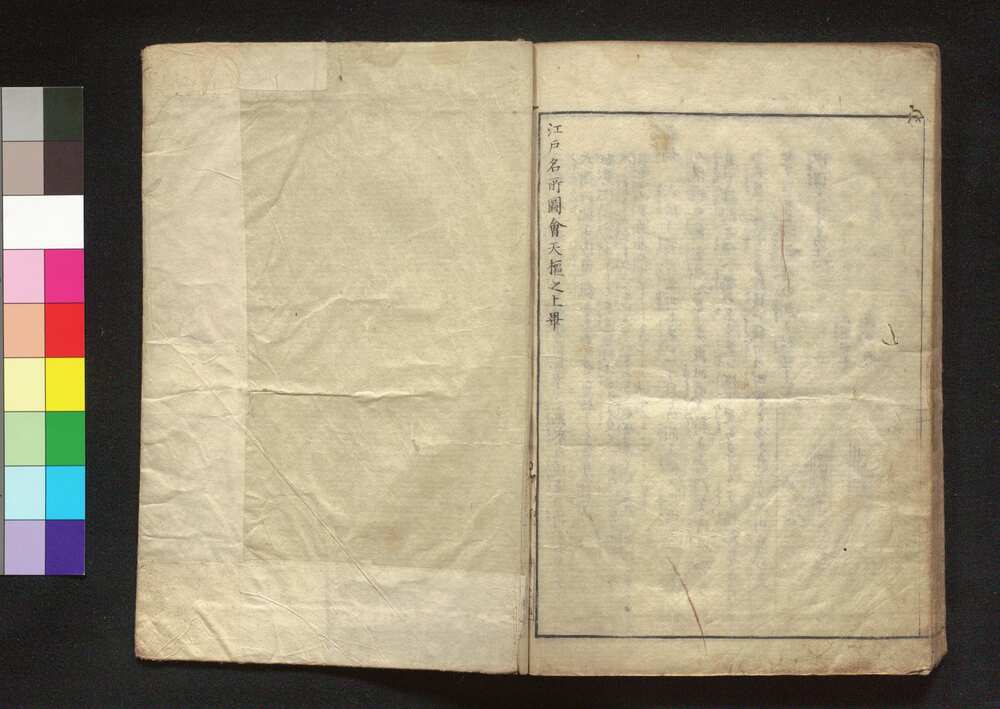 江戸名所圖會天樞之上畢